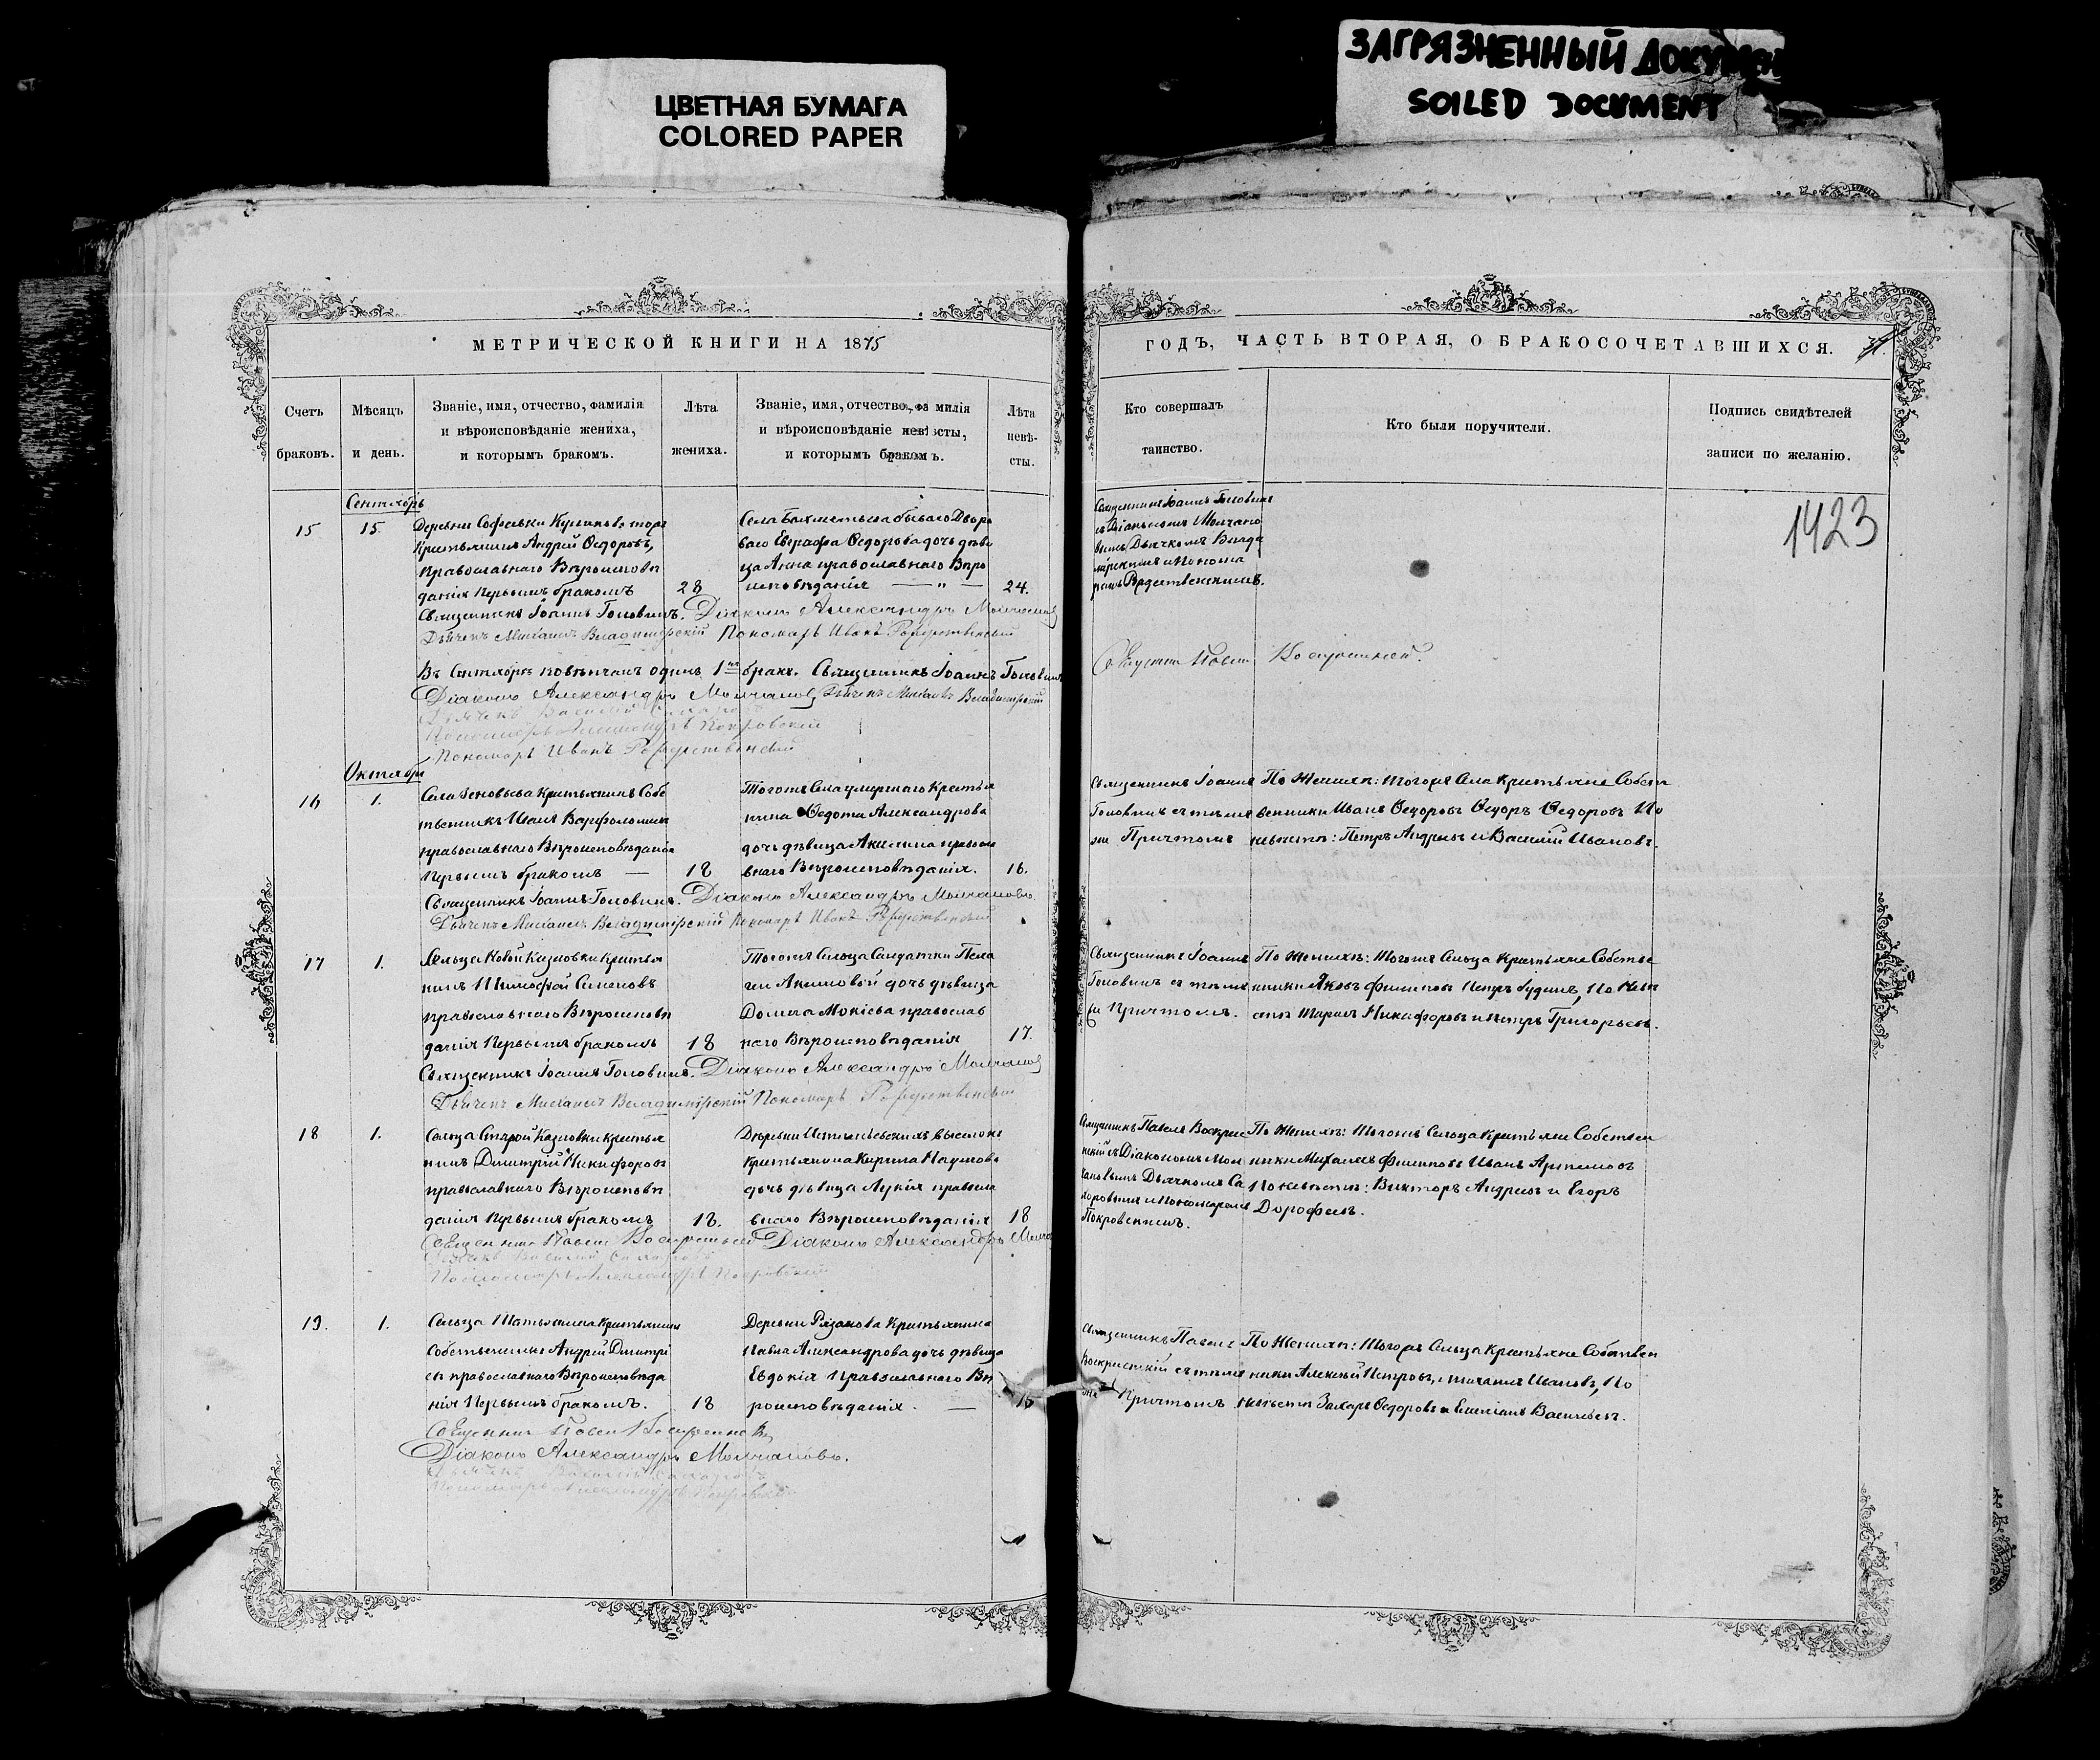 ЗАГРЯЗНЕННЫЙ ДОКУМЕН
SOILED DOCUMENT
ЦВЕТНАЯ БУМАГА
COLORED PAPER
МЕТРИЧЕСКОЙ КНИГИ НА 1875
ГОДЪ, ЧАСТЬ ВТОРАЯ, О БРАКОСОЧЕТАВШИХСЯ.
Счетъ
браковъ.
Мѣсяцъ
и день.
Званіе, имя, отчество, фамилія
и вѣроисповѣданіе жениха,
и которымъ бракомъ.
Лѣта
жениха.
Званіе, имя, отчество, фамилія
и вѣроисповѣданіе невѣсты,
и которымъ бракомъ.
Лѣта
невѣ-
сты.
Кто совершалъ
таинство.
Кто были поручители.
Подпись свидѣтелей
записи по желанію.
1423
Сентябрь
15
15.
Деревни Софьевки
Крестьянинъ Андрей Ѳедоровъ,
Православнаго Вѣроисповѣ
данія Первымъ бракомъ
28
Села бывшаго Дворо
ваго Евграфа Ѳедорова дочь дѣви
ца Анна православнаго Вѣро
исповѣданія — „ —
24.
Священникъ Іоаннъ Головинъ
съ Діакономъ Молчано
вымъ Дьячкомъ Влади
мірскимъ и Понома
ремъ Рождественскимъ.
Священникъ Іоаннъ Головинъ. Діаконъ Александръ Молчановъ
Дьячекъ Михаилъ Владимірскій Пономарь Иванъ Рождественскій
Въ Сентябрѣ повѣнчанъ одинъ 1нъ бракъ. Священникъ Іоаннъ Головинъ
Діаконъ Александръ Молчановъ Дьячекъ Михаилъ Владимірскій
Дьячекъ Василій
Пономарь Александръ Покровскій
Пономарь Иванъ Рождественскій
Священникъ Павелъ Воскресенскій.
Октябрь
16
1.
Села Крестьянинъ Собс
твенникъ Иванъ Варфоломеевъ
православнаго Вѣроисповѣданія
Первымъ бракомъ —
18
Тогоже Села умершаго Крестья
нина Ѳедота Александрова
дочь дѣвица Акилина правосла
внаго Вѣроисповѣданія.
16.
Священникъ Іоаннъ
Головинъ съ тѣмъ
же Причтомъ
По Женихѣ: тогоже Села Крестьяне Собст
венники Иванъ Ѳедоровъ Ѳедоръ Ѳедоровъ По
невѣстѣ: Петръ Андреевъ и Василій Ивановъ.
Священникъ Іоаннъ Головинъ. Діаконъ Александръ Молчановъ.
Дьячекъ Михаилъ Владимірскій Пономарь Иванъ Рождественскій
17
1.
Сельца Новой Казловки Крестья
нинъ Тимофей Симеоновъ
православнаго Вѣроисповѣ
данія Первымъ бракомъ
18
Тогоже Сельца Солдатки Пела
геи Акимовой дочь дѣвица
Домна Мокіева православ
наго Вѣроисповѣданія
17.
Священникъ Іоаннъ
Головинъ съ тѣмъ
же Причтомъ.
По Женихѣ: Тогоже Сельца Крестьяне Собстве
нники Яковъ Филиповъ Петръ По Невѣ
стѣ Никифоровъ и Петръ Григорьевъ.
Священникъ Іоаннъ Головинъ. Діаконъ Александръ Молчановъ
Дьячекъ Михаилъ Владимірскій Пономарь Рождественскій
18
1.
Сельца Старой Казловки Крестья
нинъ Димитрій Никифоровъ
православнаго Вѣроисповѣ
данія Первымъ бракомъ
18.
Деревни выселокъ
Крестьянина Кирила Наумова
дочь дѣвица Лукія правосла
внаго Вѣроисповѣданія
18
Священникъ Павелъ Воскресе
нскій съ Діакономъ Мол
чановымъ Дьячкомъ Са
харовымъ и Пономаремъ
Покровскимъ.
По Женихѣ: Тогоже Сельца Крестьяне Собствен
ники Михаилъ Филиповъ Иванъ Артемовъ
По невѣстѣ: Викторъ Андреевъ и Егоръ
Дорофеевъ.
Священникъ Павелъ Воскресенскій Діаконъ Александръ Молча
Дьячекъ Василій Сахаровъ
Пономарь Александръ Покровскій
19.
1.
Сельца Крестьянинъ
Собственникъ Андрей Димитрі
евъ православнаго Вѣроисповѣда
нія Первымъ бракомъ.
18
Деревни Рязанова Крестьянина
Павла Александрова дочь дѣвица
Евдокія Православнаго Вѣ
роисповѣданія. —
Священникъ Павелъ
Воскресенскій съ тѣмъ
же Причтомъ
По Женихѣ: Тогоже Сельца Крестьяне Собствен
ники Алексѣй Петровъ, Ивановъ, По
невѣстѣ Захаръ Ѳедоровъ и Емеліанъ Васильевъ.
Священникъ Павелъ Воскресенскій
Діаконъ Александръ Молчановъ.
Дьячекъ Василій Сахаровъ
Пономарь Александръ Покровскій